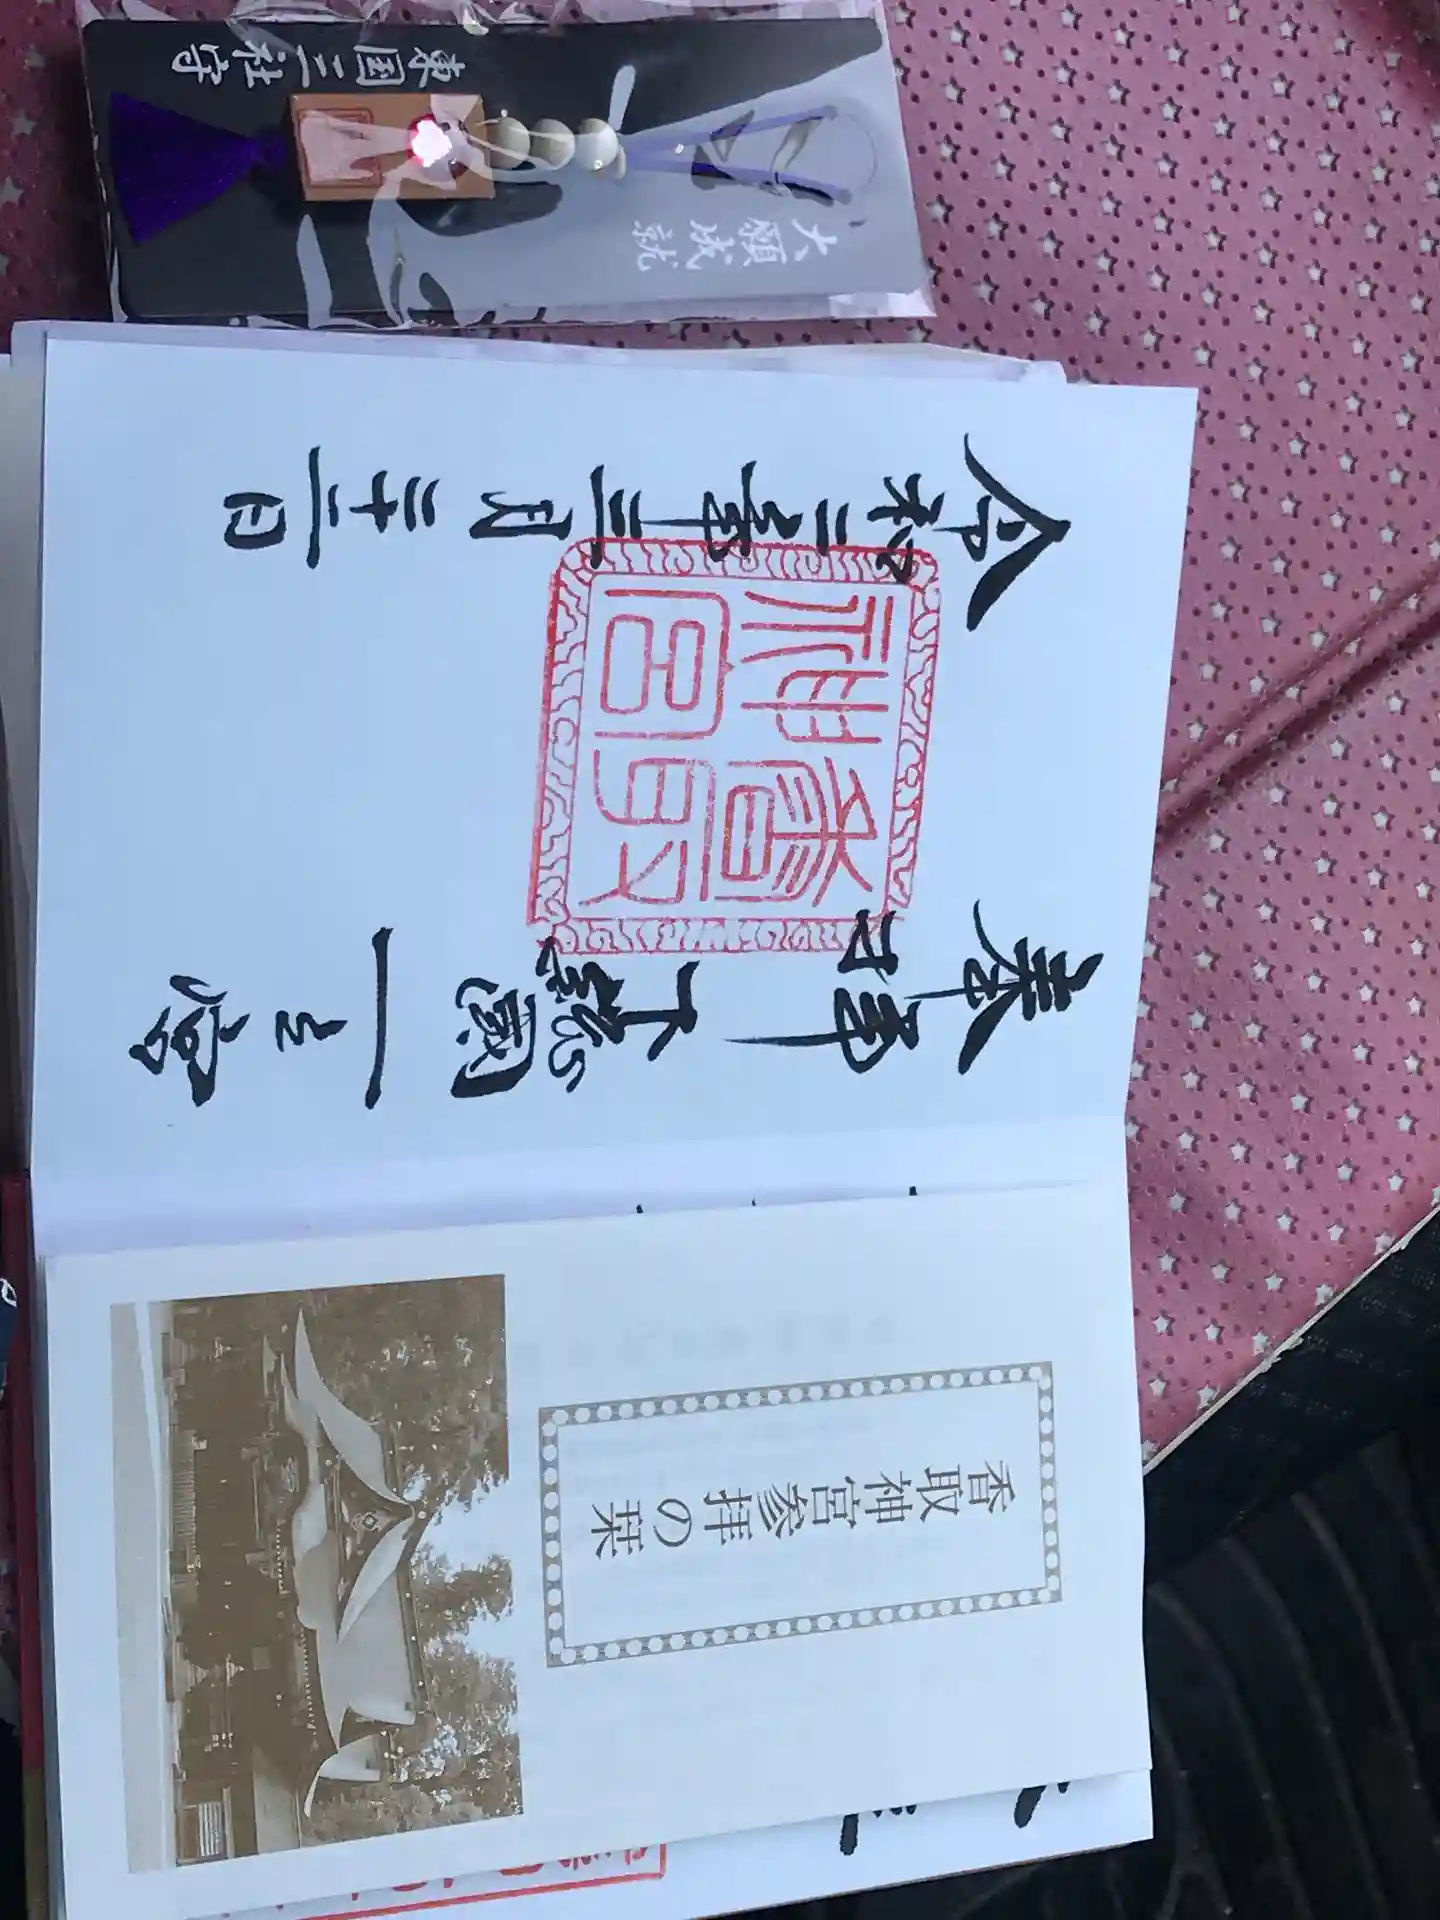 東国三社守
大願成就
奉拝
下総國一之宮
香取
神宮
令和二年三月二十一日
香取神宮参拝の栞